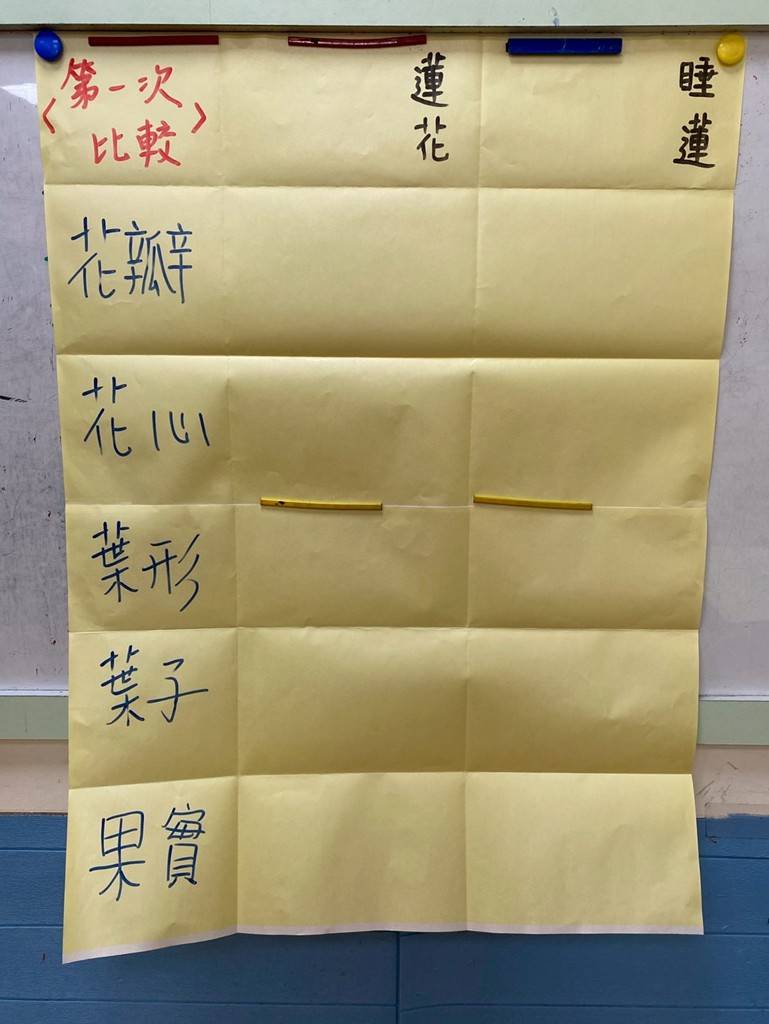 〈第一次
比較〉
蓮花
睡蓮
花瓣
花心
葉形
葉子
果實